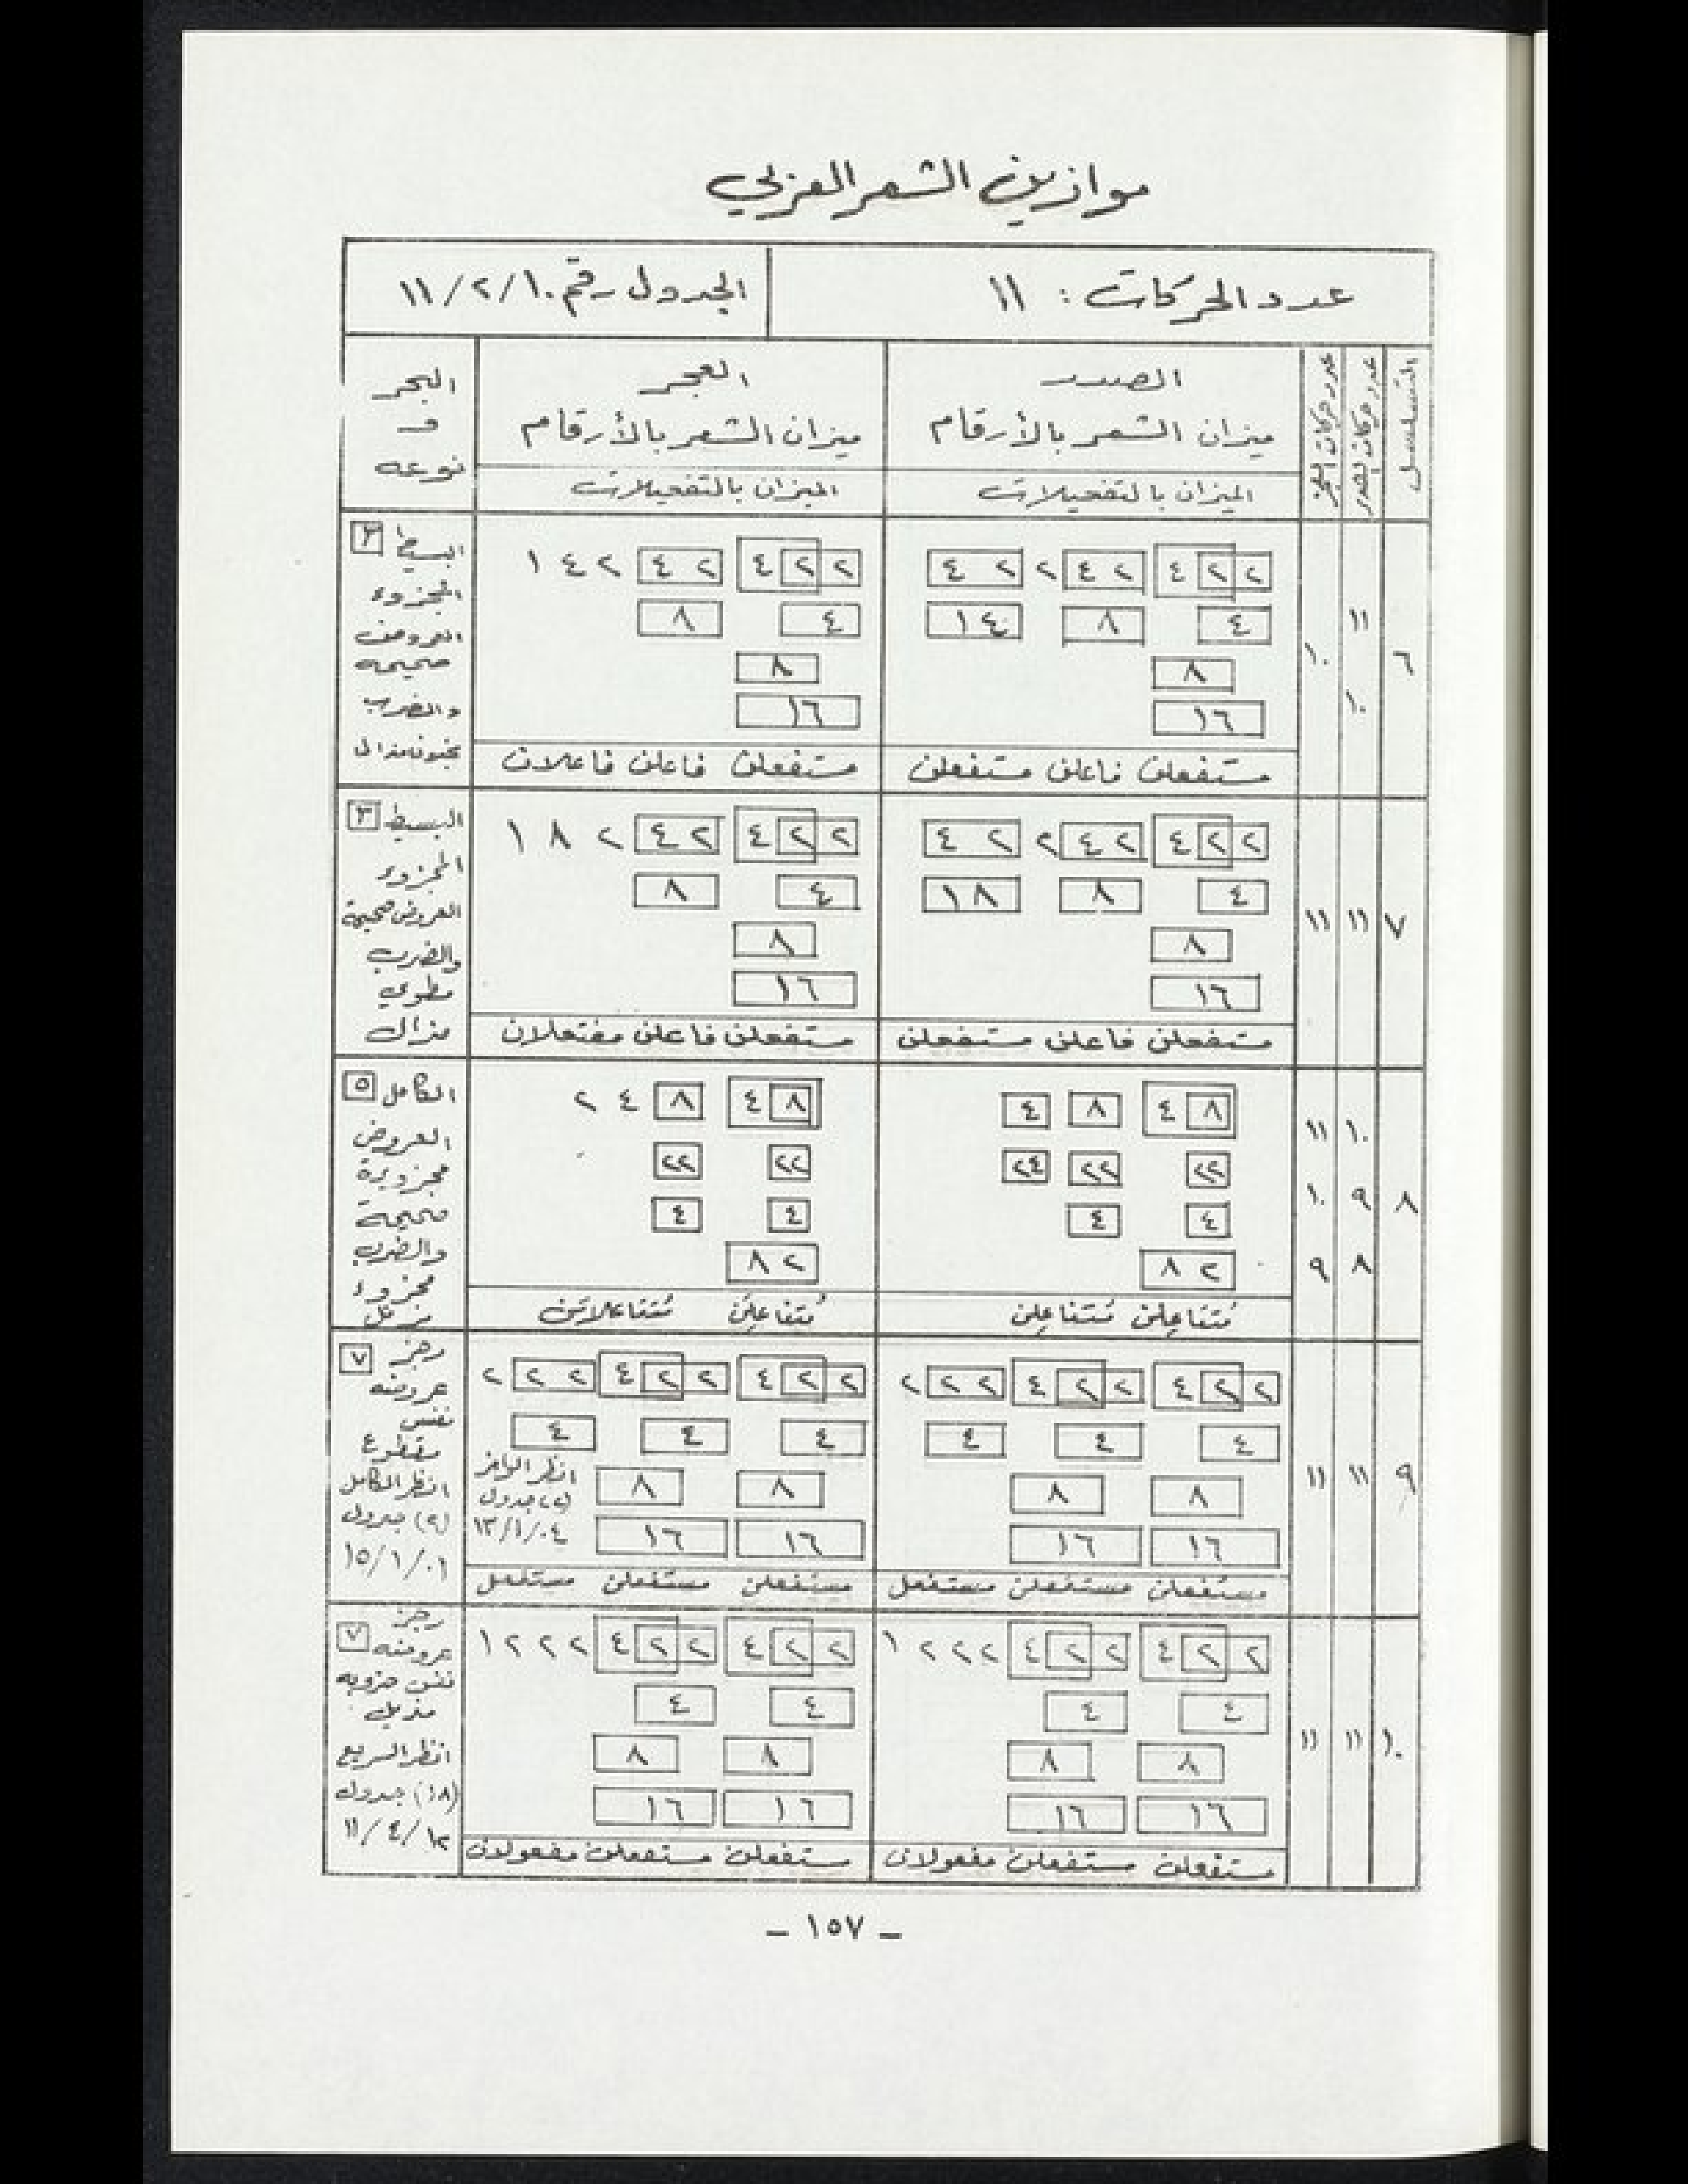 موازين الشعر العربي
عدد الحركات : ١١
الجدول رقم ١١/٢/١٠
المتسلسل
عدد حركات الصدر
عدد حركات العجز
الصدر
ميزان الشعر بالأرقام
الميزان بالتفعيلات
العجز
ميزان الشعر بالأرقام
الميزان بالتفعيلات
البحر
و
نوعه
٦
١١
١٠
١٠
٢ ٢ ٤ ٢ ٤ ٢ ٢ ٤
٤ ٨ ١٤
٨
١٦
مستفعلن فاعلن مستفعلن
٢ ٢ ٤ ٢ ٤ ٢ ٤ ١
٤ ٨
٨
١٦
مستفعلن فاعلن فاعلان
البسيط ٣
المجزوء
العروض
صحيحه
والضرب
٧
١١
١١
٢ ٢ ٤ ٢ ٤ ٢ ٢ ٤
٤ ٨ ١٨
٨
١٦
مستفعلن فاعلن مستفعلن
٢ ٢ ٤ ٢ ٤ ٢ ٨ ١
٤ ٨
٨
١٦
مستفعلن فاعلن مفتعلان
البسيط ٣
المجزوء
العروض صحيحة
والضرب
مطوي
مذال
٨
١٠ ١١
٩ ١٠
٨ ٩
٨ ٤ ٨ ٤
٢٢ ٢٢ ٢٤
٤ ٤
٢ ٨
مُتفاعِلن مُتفاعِلن
٨ ٤ ٨ ٤ ٢
٢٢ ٢٢
٤ ٤
٢ ٨
مُتفاعِلن مُتفاعلاتن
الكامل ٥
العروض
مجزوءة
صحيحة
والضرب
مجزوء
مرفل
٩
١١
١١
٢ ٢ ٤ ٢ ٢ ٤ ٢ ٢ ٢ ٢
٤ ٤ ٤
٨ ٨
١٦ ١٦
مستفعلن مستفعلن مستفعل
٢ ٢ ٤ ٢ ٢ ٤ ٢ ٢ ٢ ٢
٤ ٤ ٤
٨ ٨ انظر الوافر
(٢) جدول
١٦ ١٦ ١٣/١/٠٤
مستفعلن مستفعلن مستفعل
رجز ٧
عروضه
نفس
مقطوع
انظر الكامل
(٢) جدول
١٥/١/٠١
١٠
١١
١١
٢ ٢ ٤ ٢ ٢ ٤ ٢ ٢ ٢ ١
٤ ٤
٨ ٨
١٦ ١٦
مستفعلن مستفعلن مفعولان
٢ ٢ ٤ ٢ ٢ ٤ ٢ ٢ ٢ ١
٤ ٤
٨ ٨
١٦ ١٦
مستفعلن مستفعلن مفعولان
رجز
عروضه ٧
نفس ضربه
مذيل
انظر السريع
(١٨) جدول
١١/٤/١٢
– ١٥٧ –